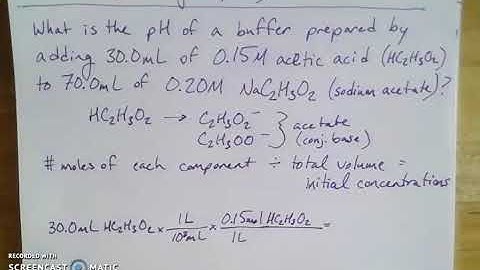 What is the pH of a buffer prepared by
adding 30.0mL of 0.15M acetic acid (HC₂H₃O₂)
to 70.0mL of 0.20M NaC₂H₃O₂ (sodium acetate)?
HC₂H₃O₂ → C₂H₃O₂⁻ } acetate
C₂H₃OO⁻ } (conj. base)
# moles of each component ÷ total volume =
initial concentrations
30.0mL HC₂H₃O₂ × 1L/10³mL × 0.15mol HC₂H₃O₂/1L =
RECORDED WITH
SCREENCAST MATIC